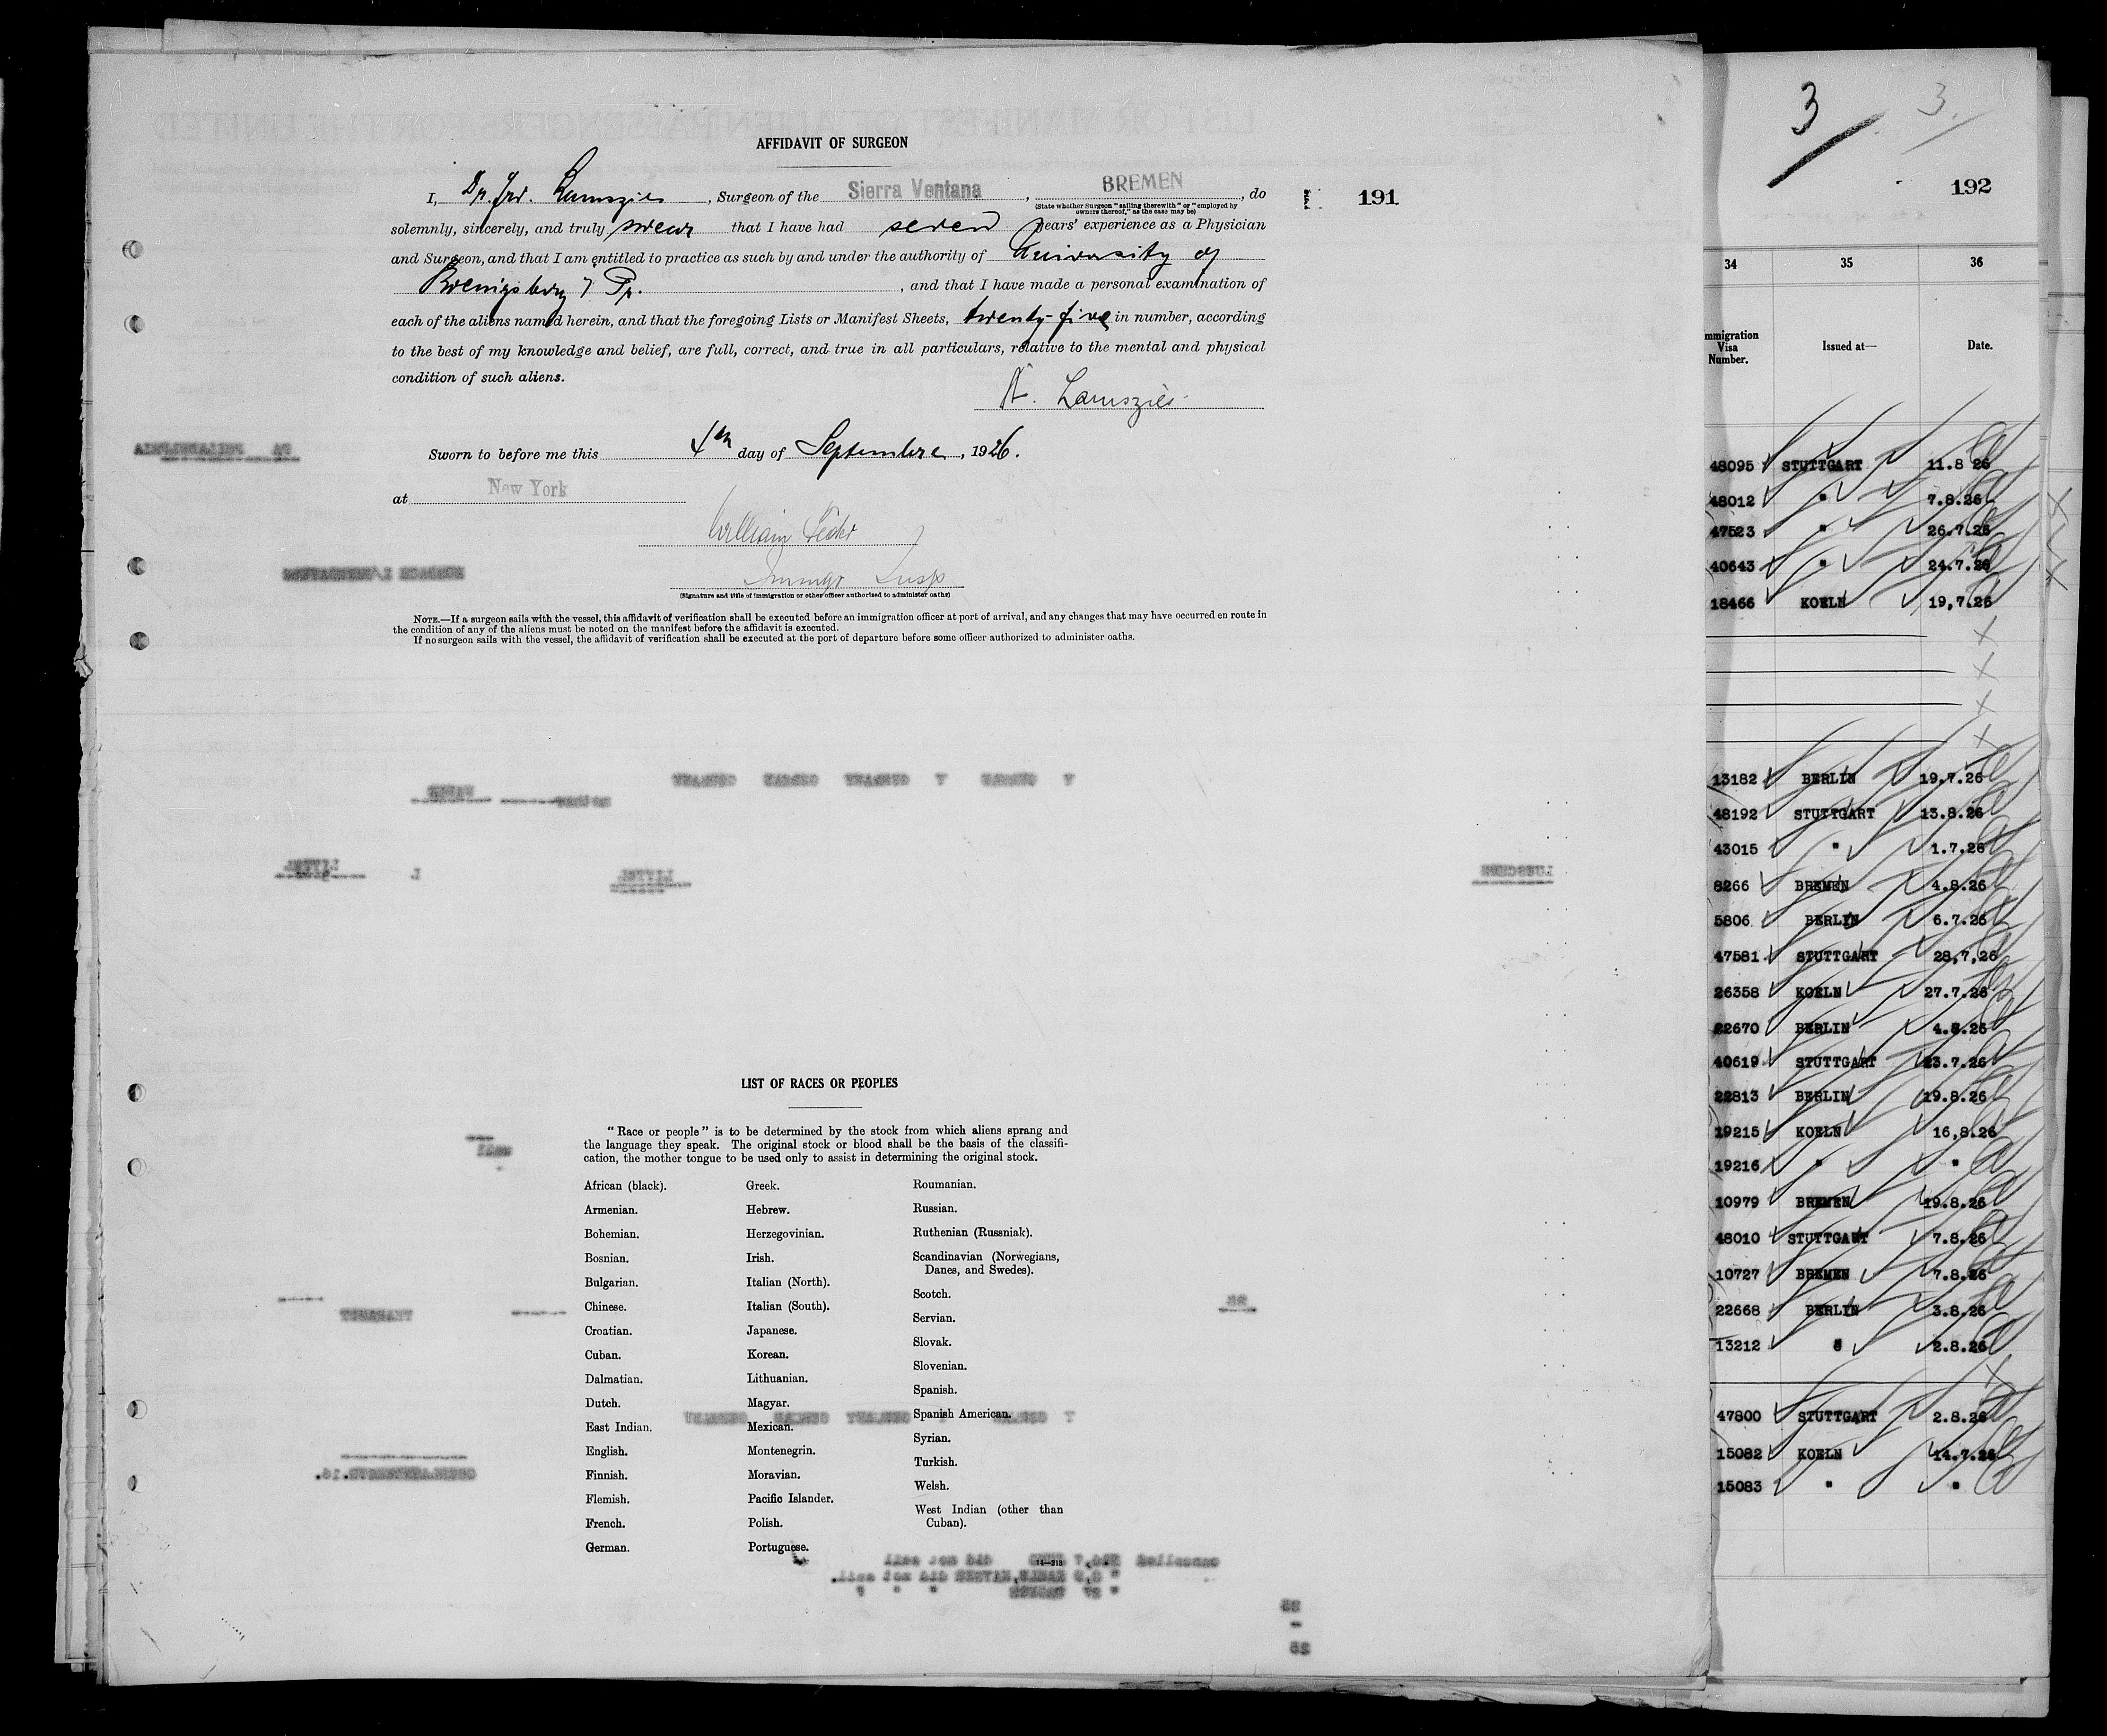 AFFIDAVIT OF SURGEON
I, Dr. , Surgeon of the Sierra Ventana , BREMEN , do
(State whether Surgeon "sailing therewith" or "employed by
owners thereof," as the case may be)
191
solemnly, sincerely, and truly swear that I have had seven years' experience as a Physician
and Surgeon, and that I am entitled to practice as such by and under the authority of University of
Koenigsberg Pr. , and that I have made a personal examination of
each of the aliens named herein, and that the foregoing Lists or Manifest Sheets, twenty-five in number, according
to the best of my knowledge and belief, are full, correct, and true in all particulars, relative to the mental and physical
condition of such aliens.
Sworn to before me this 4th day of Septembre, 1926.
at New York
William
Immgr Insp
(Signature and title of immigration or other officer authorized to administer oaths)
NOTE.—If a surgeon sails with the vessel, this affidavit of verification shall be executed before an immigration officer at port of arrival, and any changes that may have occurred en route in
the condition of any of the aliens must be noted on the manifest before the affidavit is executed.
If no surgeon sails with the vessel, the affidavit of verification shall be executed at the port of departure before some officer authorized to administer oaths.
LIST OF RACES OR PEOPLES
"Race or people" is to be determined by the stock from which aliens sprang and
the language they speak. The original stock or blood shall be the basis of the classifi-
cation, the mother tongue to be used only to assist in determining the original stock.
African (black).
Armenian.
Bohemian.
Bosnian.
Bulgarian.
Chinese.
Croatian.
Cuban.
Dalmatian.
Dutch.
East Indian.
English.
Finnish.
Flemish.
French.
German.
Greek.
Hebrew.
Herzegovinian.
Irish.
Italian (North).
Italian (South).
Japanese.
Korean.
Lithuanian.
Magyar.
Mexican.
Montenegrin.
Moravian.
Pacific Islander.
Polish.
Portuguese.
Roumanian.
Russian.
Ruthenian (Russniak).
Scandinavian (Norwegians,
Danes, and Swedes).
Scotch.
Servian.
Slovak.
Slovenian.
Spanish.
Spanish American.
Syrian.
Turkish.
Welsh.
West Indian (other than
Cuban).
3 3
192
34 35 36
mmigration
Visa
Number.
Issued at—
Date.
48095 STUTTGART 11.8 26
48012 " 7.8.26
47523 " 26.7.26
40643 " 24.7.26
18466 KOELN 19,7.26
13182 BERLIN 19.7.26
48192 STUTTGART 13.8.26
43015 " 1.7.26
8266 BREMEN 4.8.26
5806 BERLIN 6.7.26
47581 STUTTGART 28,7,26
26358 KOELN 27.7.26
22670 BERLIN 4.8.26
40619 STUTTGART 23.7.26
22813 BERLIN 19.8.26
19215 KOELN 16,8.26
19216 " "
10979 BREMEN 19.8.26
48010 STUTTGART 7.8.26
10727 BREMEN 7.8.26
22668 BERLIN 3.8.26
13212 " 2.8.26
47800 STUTTGART 2.8.26
15082 KOELN 14.7.26
15083 " "